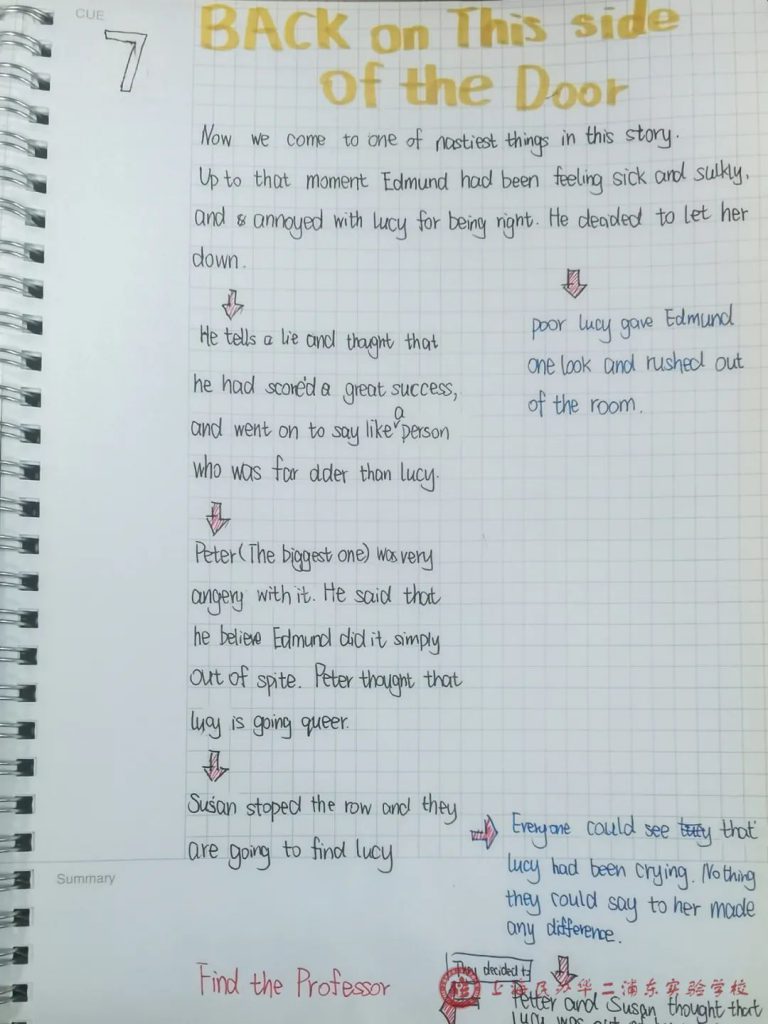 CUE
7
BACK on This side
of the Door
Now we come to one of nastiest things in this story.
Up to that moment Edmund had been feeling sick and sulkly,
and & annoyed with lucy for being right. He deaded to let her
down.
He tells a lie and thaght that
he had score'd a great success,
and went on to say like a person
who was far older than lucy.
poor lucy gave Edmund
one look and rushed out
of the room.
Peter (The biggest one) was very
angery with it. He said that
he believe Edmund did it simply
out of spite. Peter thought that
lucy is going queer.
Susan stoped the row and they
are going to find lucy
Everyone could see that
lucy had been crying. Nothing
they could say to her made
any difference.
Summary
They decided to
Find the Professor
上海民办华二浦东实验学校
Petter and Susan thought that
lucy was out of